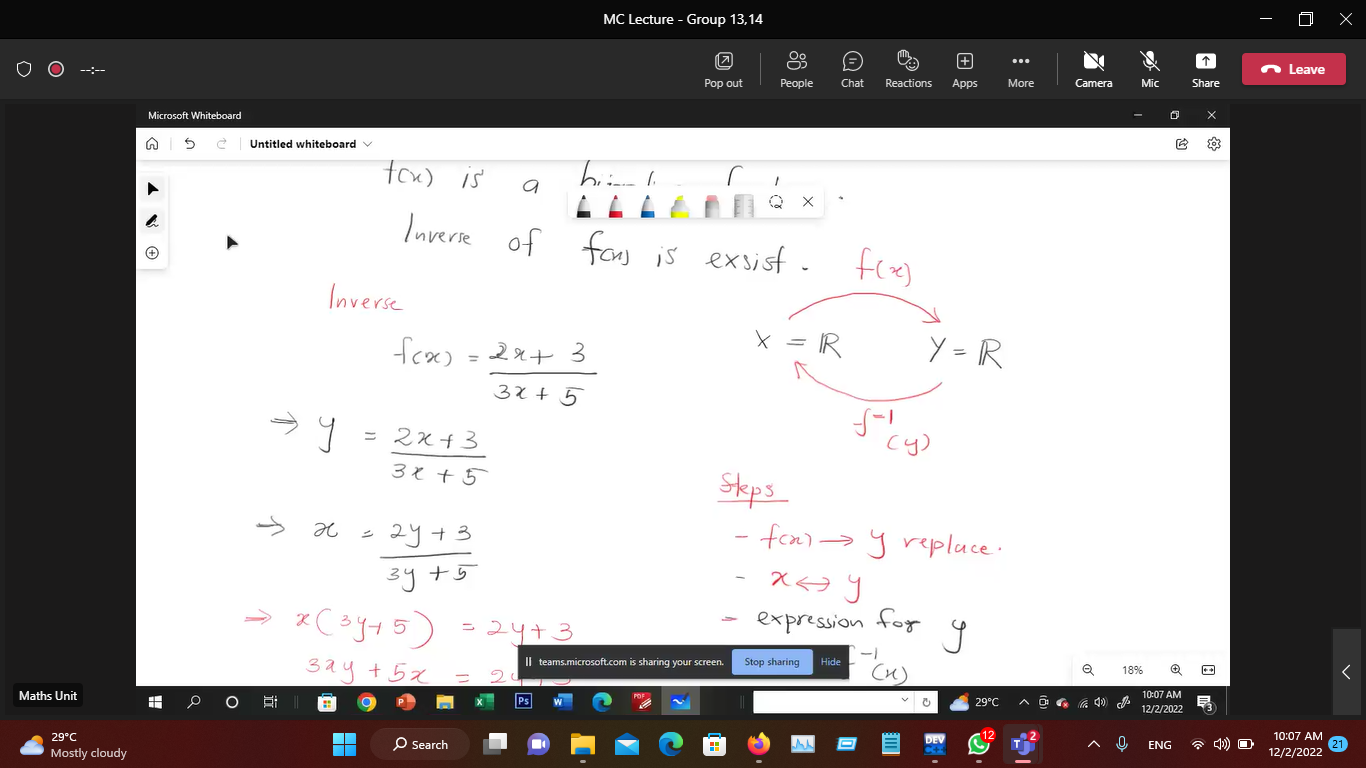 MC Lecture - Group 13,14
--:--
Pop out
People
Chat
Reactions
Apps
More
Camera
Mic
Share
Leave
Microsoft Whiteboard
Untitled whiteboard
f(x) is a
Inverse of f(x) is exsist.
f(x)
Inverse
X = ℝ
Y = ℝ
f(x) = 2x + 3
3x + 5
f⁻¹
(y)
⇒ y = 2x + 3
3x + 5
Steps
⇒ x = 2y + 3
3y + 5
- f(x) → y replace.
- x ↔ y
- expression for y
⇒ x(3y + 5) = 2y + 3
3xy + 5x = 2y + 3
⁻¹(x)
teams.microsoft.com is sharing your screen.
Stop sharing
Hide
18%
Maths Unit
29°C
10:07 AM
12/2/2022
3
29°C
Mostly cloudy
Search
DEV
12
2
ENG
10:07 AM
12/2/2022
21